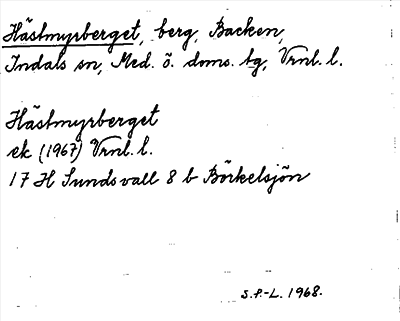 Hästmyrberget, berg, Backen,
Indals sn, Med. ö. doms. tg, Vrnl. l.
Hästmyrberget
ek (1967) Vrnl. l.
17 H Sundsvall 8 b Börkelsjön
S.P.-L. 1968.